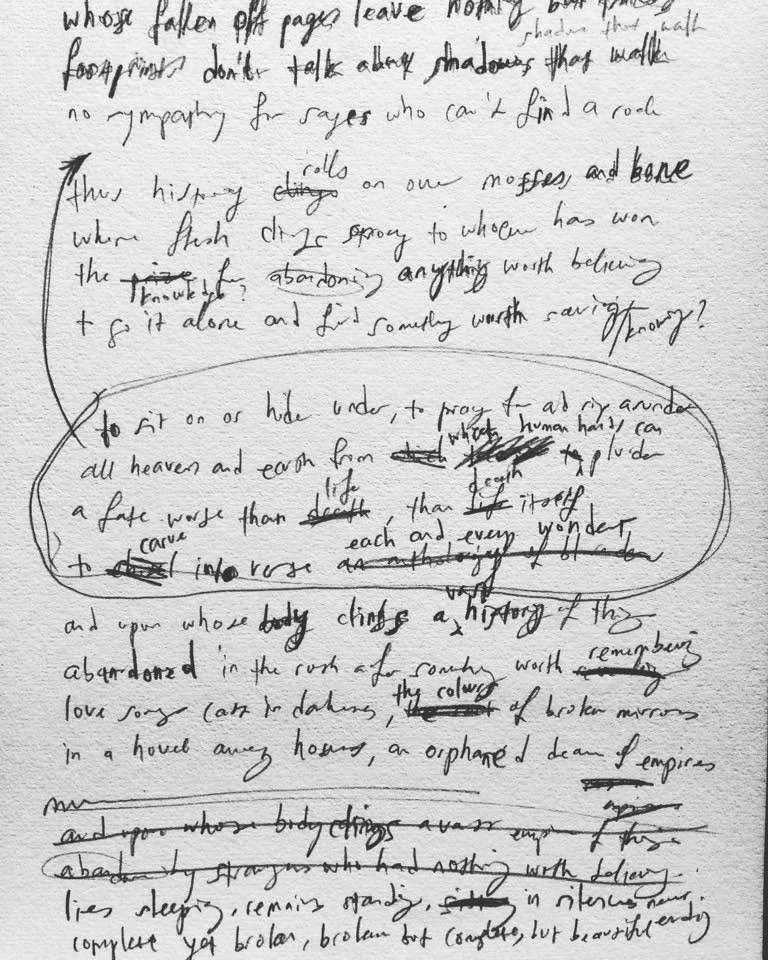 whose fallen off pages leave nothing but
shadows that walk
footprints don't talk about shadows that walk
no sympathy for sages who can't find a rock
rolls
thus history clings on over mosses and bone
where flesh clings to whoever has won
the prize for abandoning anything worth believing
knowledge?
to go it alone and find something worth saving/knowing?
to sit on or hide under, to pray for and rip asunder
where human hands can
all heavens and earth from which to plunder
life death
a fate worse than death, than life itself
carve each and every wonder
to into verse an anthology of blunder
vast
and upon whose body clings a history of things
abandoned in the rush for something worth remembering
love songs cast in darkness, the colour of broken mirrors
in a hovel among houses, an orphaned dream of empires
and upon whose body clings a vast empire of things
empires
by strangers who had nothing worth believing.
lies sleeping, remains standing, sitting in
complete yet broken, broken but complete, but beautiful ending